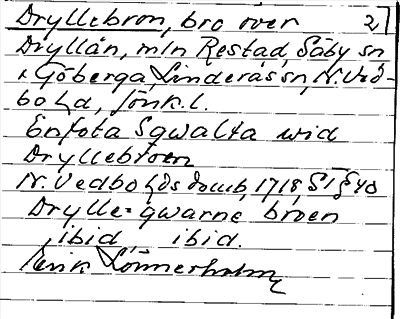 Dryllebron, bro över 27
Dryllån, mln Restad, Säby sn
& Göberga, Linderås sn, N. Ved-
bo hd, Jönk. l.
Enfota Sqwalta wid
Dryllebroen
N. Vedbo hds domb, 1718, S1 § 40
Drylle-qwarne broen
ibid, ibid.
Erik Lönnerholm